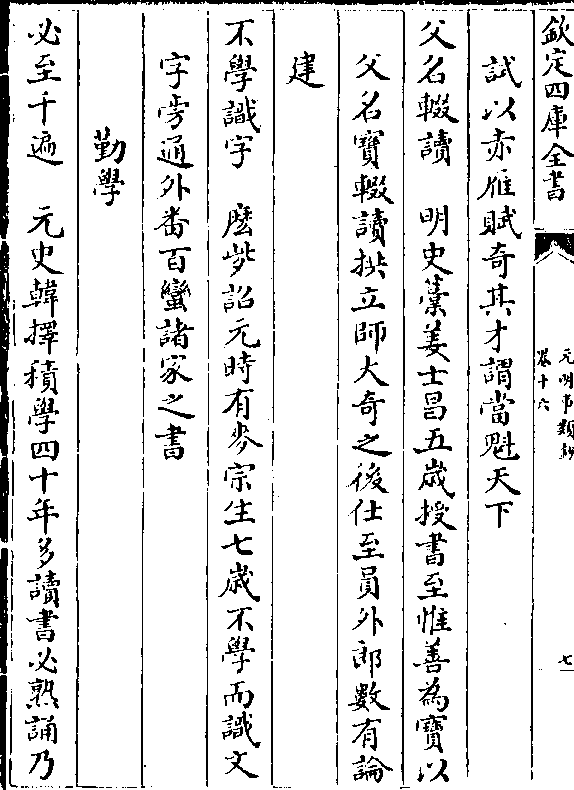 欽定四庫全書
元明事類鈔
卷十六
七
試以赤雁賦奇其才謂當魁天下
父名輟讀　明史藁姜士昌五歲授書至惟善為寶以
父名寶輟讀拱立師大奇之後仕至員外郎數有論
建
不學識字　麽些詔元時有麥宗生七歲不學而識文
字旁通外番百蠻諸家之書
勤學
必至千遍　元史韓擇積學四十年多讀書必熟誦乃